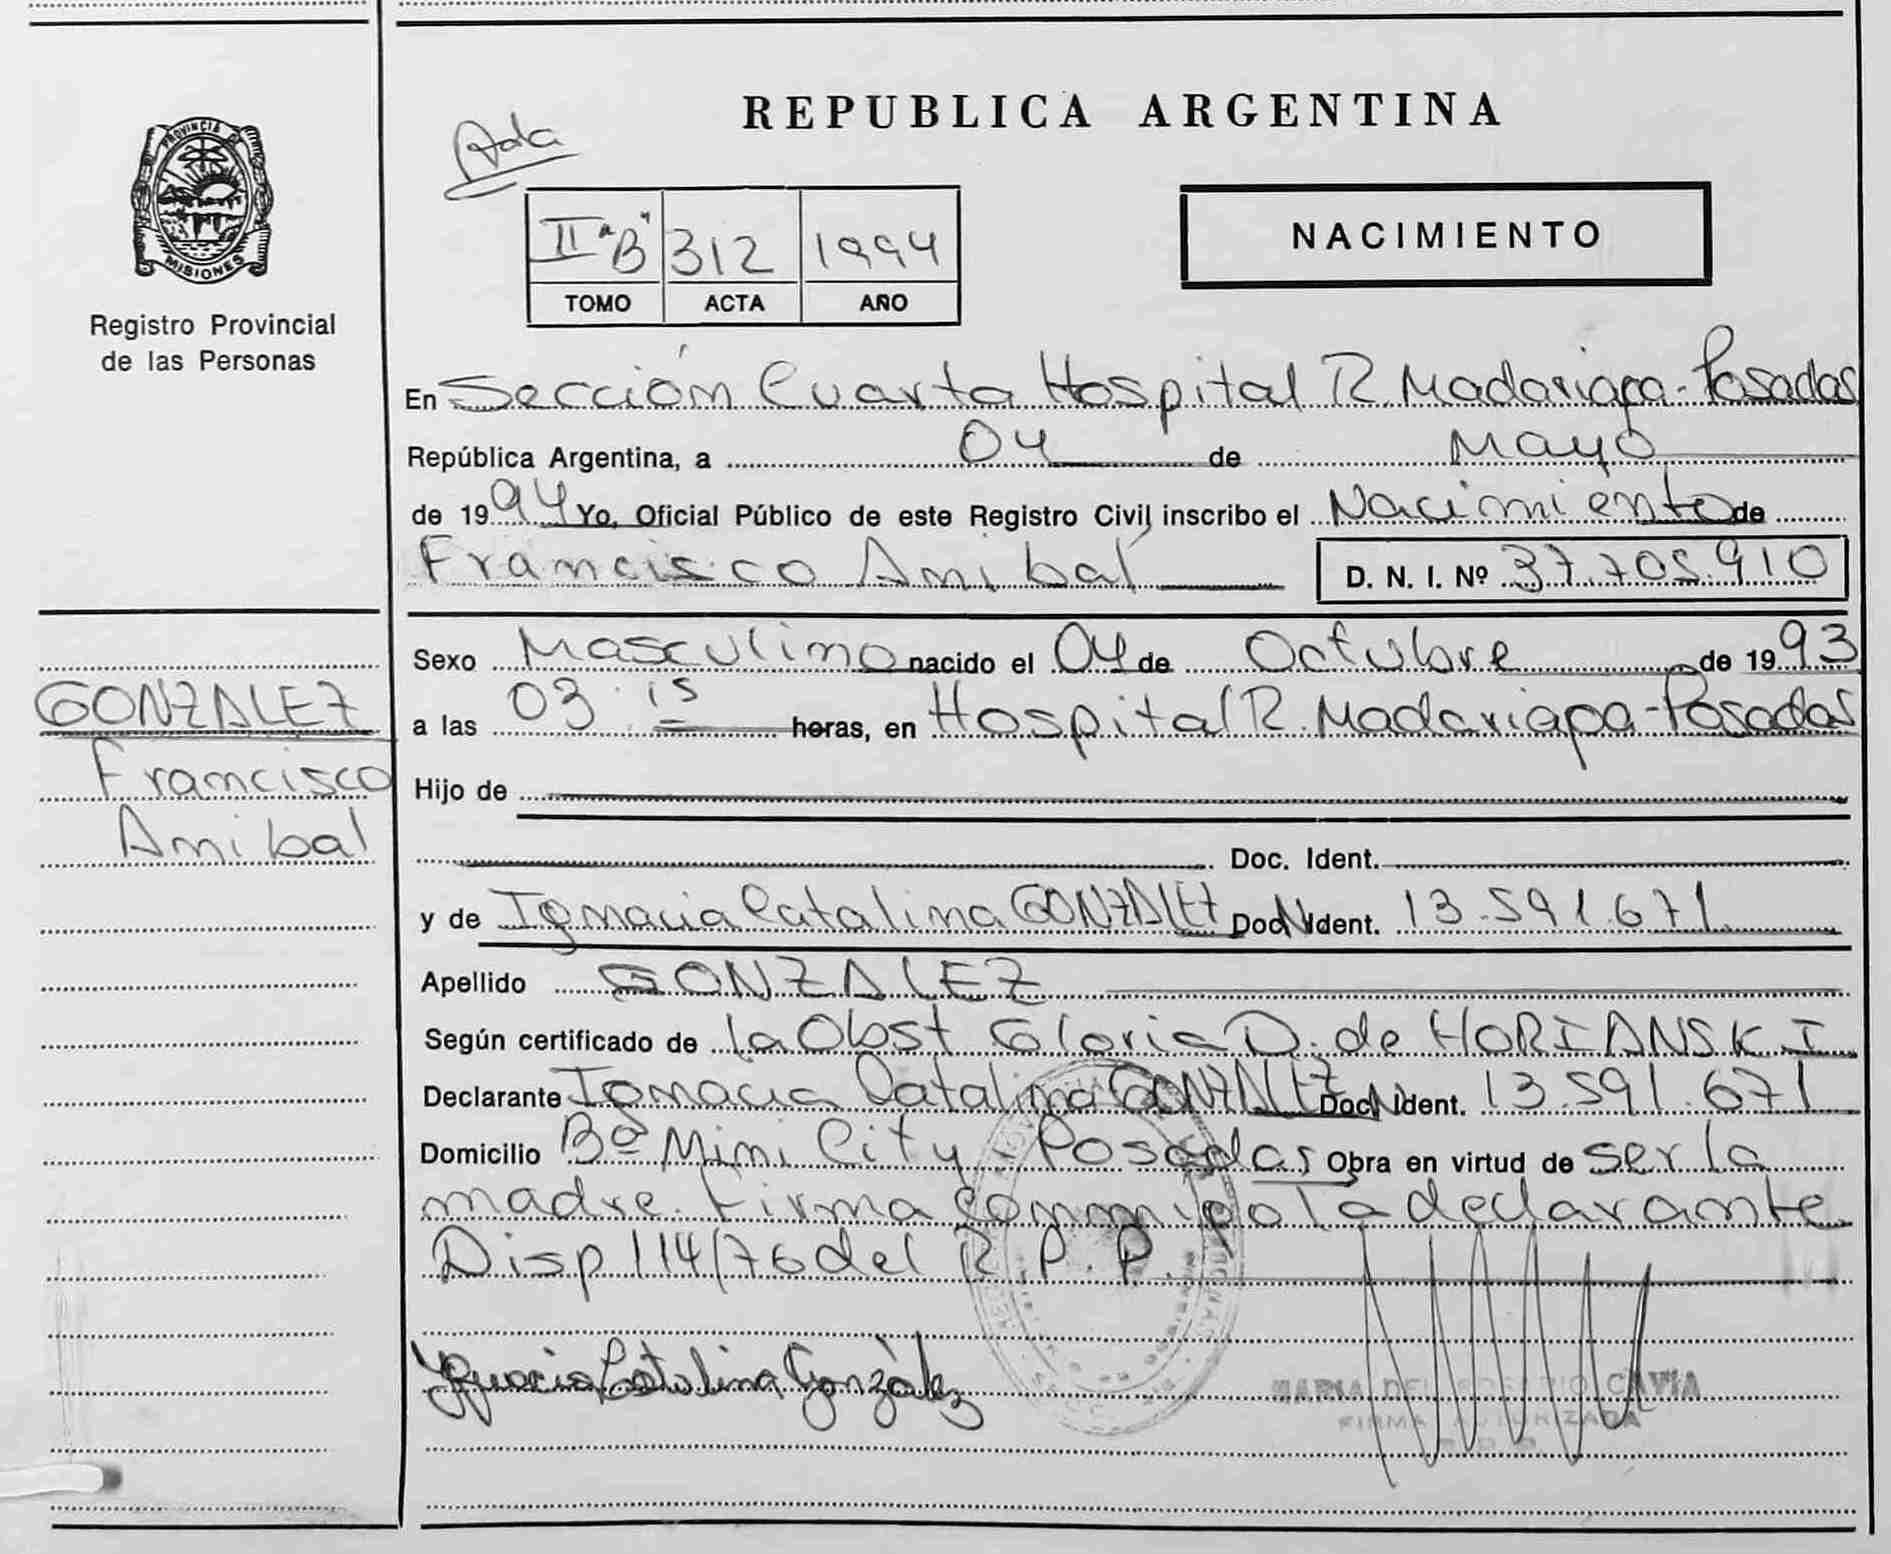 PROVINCIA DE
MISIONES
Registro Provincial
de las Personas
REPUBLICA ARGENTINA
Acta
II "B" 312 1994
TOMO ACTA AÑO
NACIMIENTO
En Sección Cuarta Hospital R. Madariaga - Posadas
República Argentina, a 04 de Mayo
de 1994 Yo, Oficial Público de este Registro Civil inscribo el Nacimiento de
Francisco Anibal D. N. I. Nº 37.705.910
Sexo Masculino nacido el 04 de Octubre de 1993
a las 03:15 horas, en Hospital R. Madariaga - Posadas
Hijo de
Doc. Ident.
y de Ignacia Catalina GONZALEZ Doc. Ident. 13.591.671
Apellido GONZALEZ
Según certificado de la Obst Gloria D. de HORIANSKI
Declarante Ignacia Catalina GONZALEZ Doc. Ident. 13.591.671
Domicilio Bº Mini City - Posadas Obra en virtud de ser la
madre. Firma conmigo la declarante
Disp 114/76 del R. P. P.
GONZALEZ
Francisco
Anibal
Ignacia Catalina González
MARIA DEL ROSARIO CAVIA
FIRMA AUTORIZADA